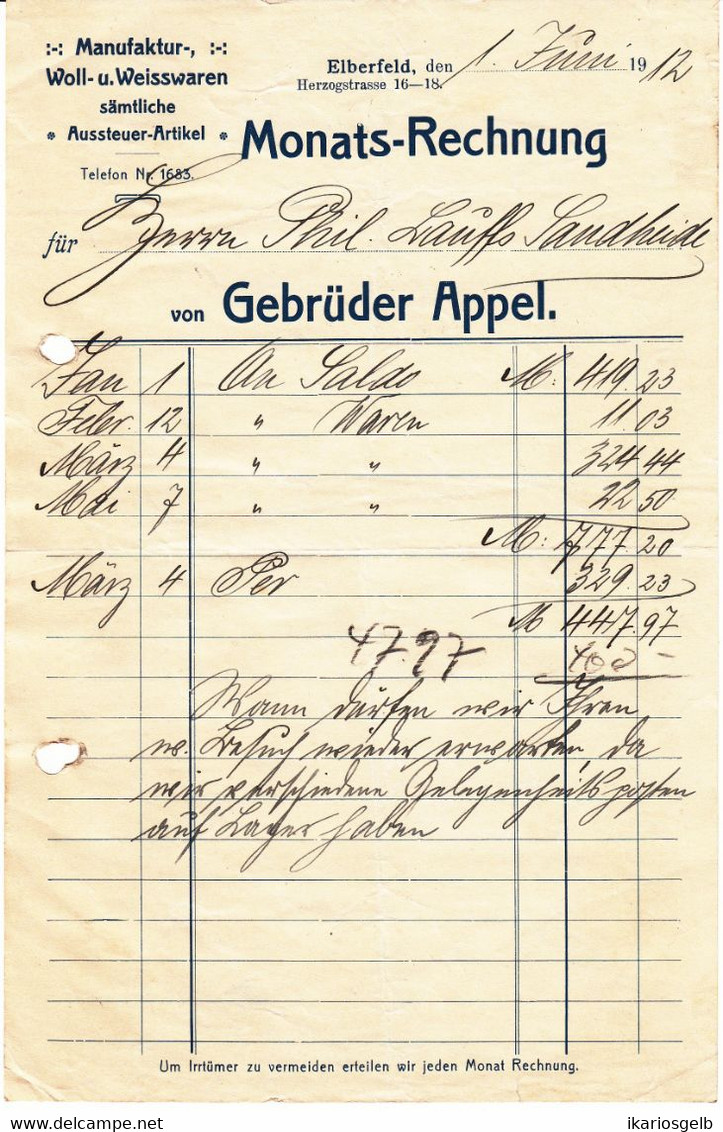 :-: Manufaktur-, :-:
Woll- u. Weisswaren
sämtliche
* Aussteuer-Artikel *
Telefon Nr. 1683.
Elberfeld, den 1. Juni 1912
Herzogstrasse 16—18.
Monats-Rechnung
für Herrn Phil. Lauffs Sandheide
von Gebrüder Appel.
Jan 1 An Saldo M: 419.23
Febr. 12 " Waren 11.03
März 4 " " 324 44
Mai 7 " " 22 50
M: 777.20
März 4 Per 329.23
M 447.97
47.97 400 -
Wann dürfen wir Ihren
w. Besuch wieder erwarten, da
wir verschiedene Gelegenheitsposten
auf Lager haben
Um Irrtümer zu vermeiden erteilen wir jeden Monat Rechnung.
ikariosgelb